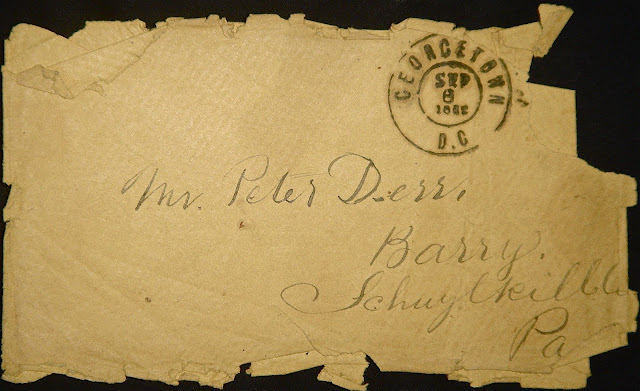 GEORGETOWN
SEP
6
1862
D.C
Mr. Peter Derr,
Barry.
Schuylkill Co
Pa